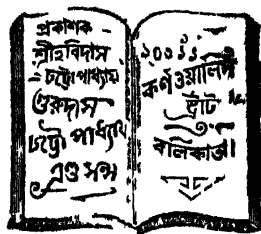 প্রকাশক -
শ্রীহরিদাস
- চট্টোপাধ্যায়
গুরুদাস
চট্টোপাধ্যায়
এণ্ড সন্স
২০৩।১।১
কর্ণওয়ালিস
ষ্ট্রীট
কলিকাতা।